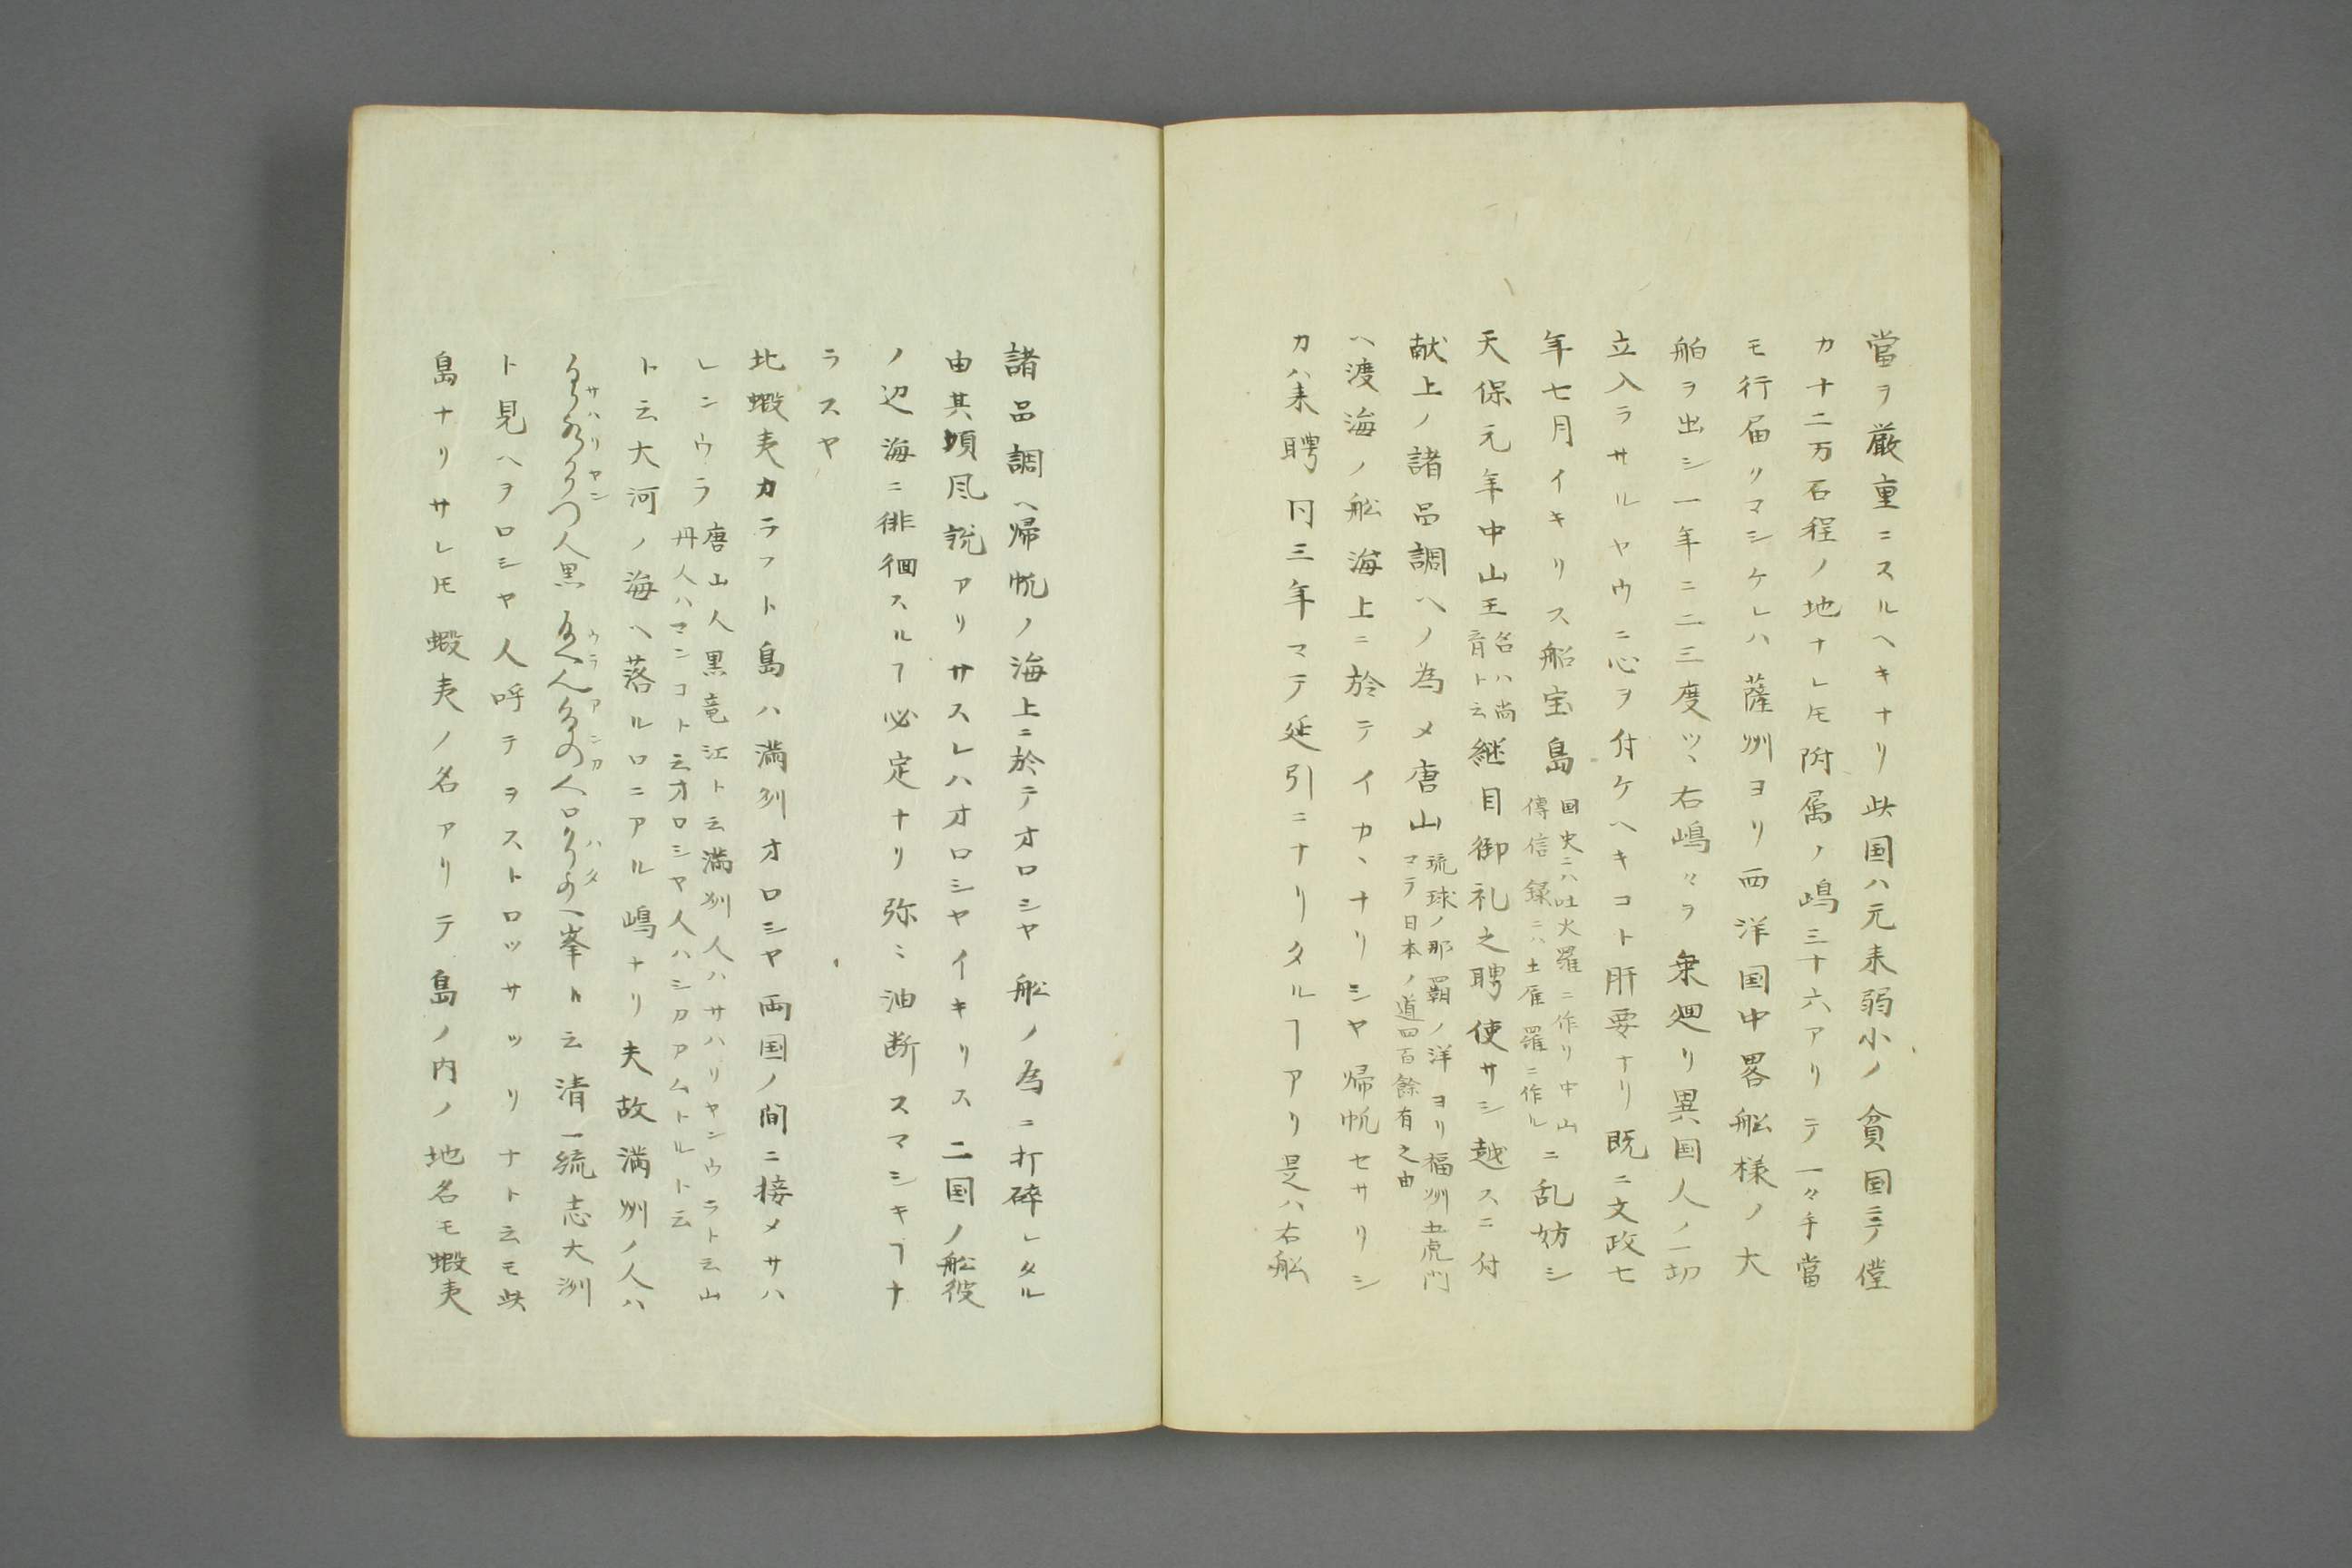 當ヲ厳重ニスルヘキナリ此国ハ元来弱小ノ貧国ニテ僅
カ十二万石程ノ地ナレ𪜈附属ノ嶋三十六アリテ一々手當
モ行届リマシケレハ薩州ヨリ西洋国中畧舩様ノ大
舶ヲ出シ一年ニ二三度ツヽ右嶋々ヲ乗廻リ異国人ノ一切
立入ラサルヤウニ心ヲ付ケヘキコト肝要ナリ既ニ文政七
年七月イキリス船宝島
国史ニハ吐火羅ニ作リ中山
傳信録ニハ土雁羅ニ作ル
ニ乱妨シ
天保元年中山王
名ハ尚
育ト云
継目御礼之聘使サシ越スニ付
献上ノ諸品調ヘノ為メ唐山
琉球ノ那覇ノ洋ヨリ福州五虎門
マテ日本ノ道四百餘有之由
ヘ渡海ノ舩海上ニ於テイカヽナリシヤ帰帆セサリシ
カハ来聘同三年マテ延引ニナリタルヿアリ是ハ右舩
諸品調ヘ帰帆ノ海上ニ於テオロシヤ舩ノ為ニ打碎レタル
由其頃風説アリサスレハオロシヤイキリス二国ノ舩彼
ノ辺海ニ徘徊スルヿ必定ナリ弥ミ油断スマシキヿナ
ラスヤ
北蝦夷カラフト島ハ満州オロシヤ両国ノ間ニ接メサハ
レンウラ
唐山人黒竜江ト云満州人ハサハリヤンウラト云山
丹人ハマンコト云オロシヤ人ハシカアムトルト云
ト云大河ノ海ヘ落ル口ニアル嶋ナリ夫故満州ノ人ハ
サハリヤン
ウラアンカ
ハタ
人黒
峯ト云清一統志大洲
ト見ヘヲロシヤ人呼テヲストロツサツリナト云モ此
島ナリサレ𪜈蝦夷ノ名アリテ島ノ内ノ地名モ蝦夷